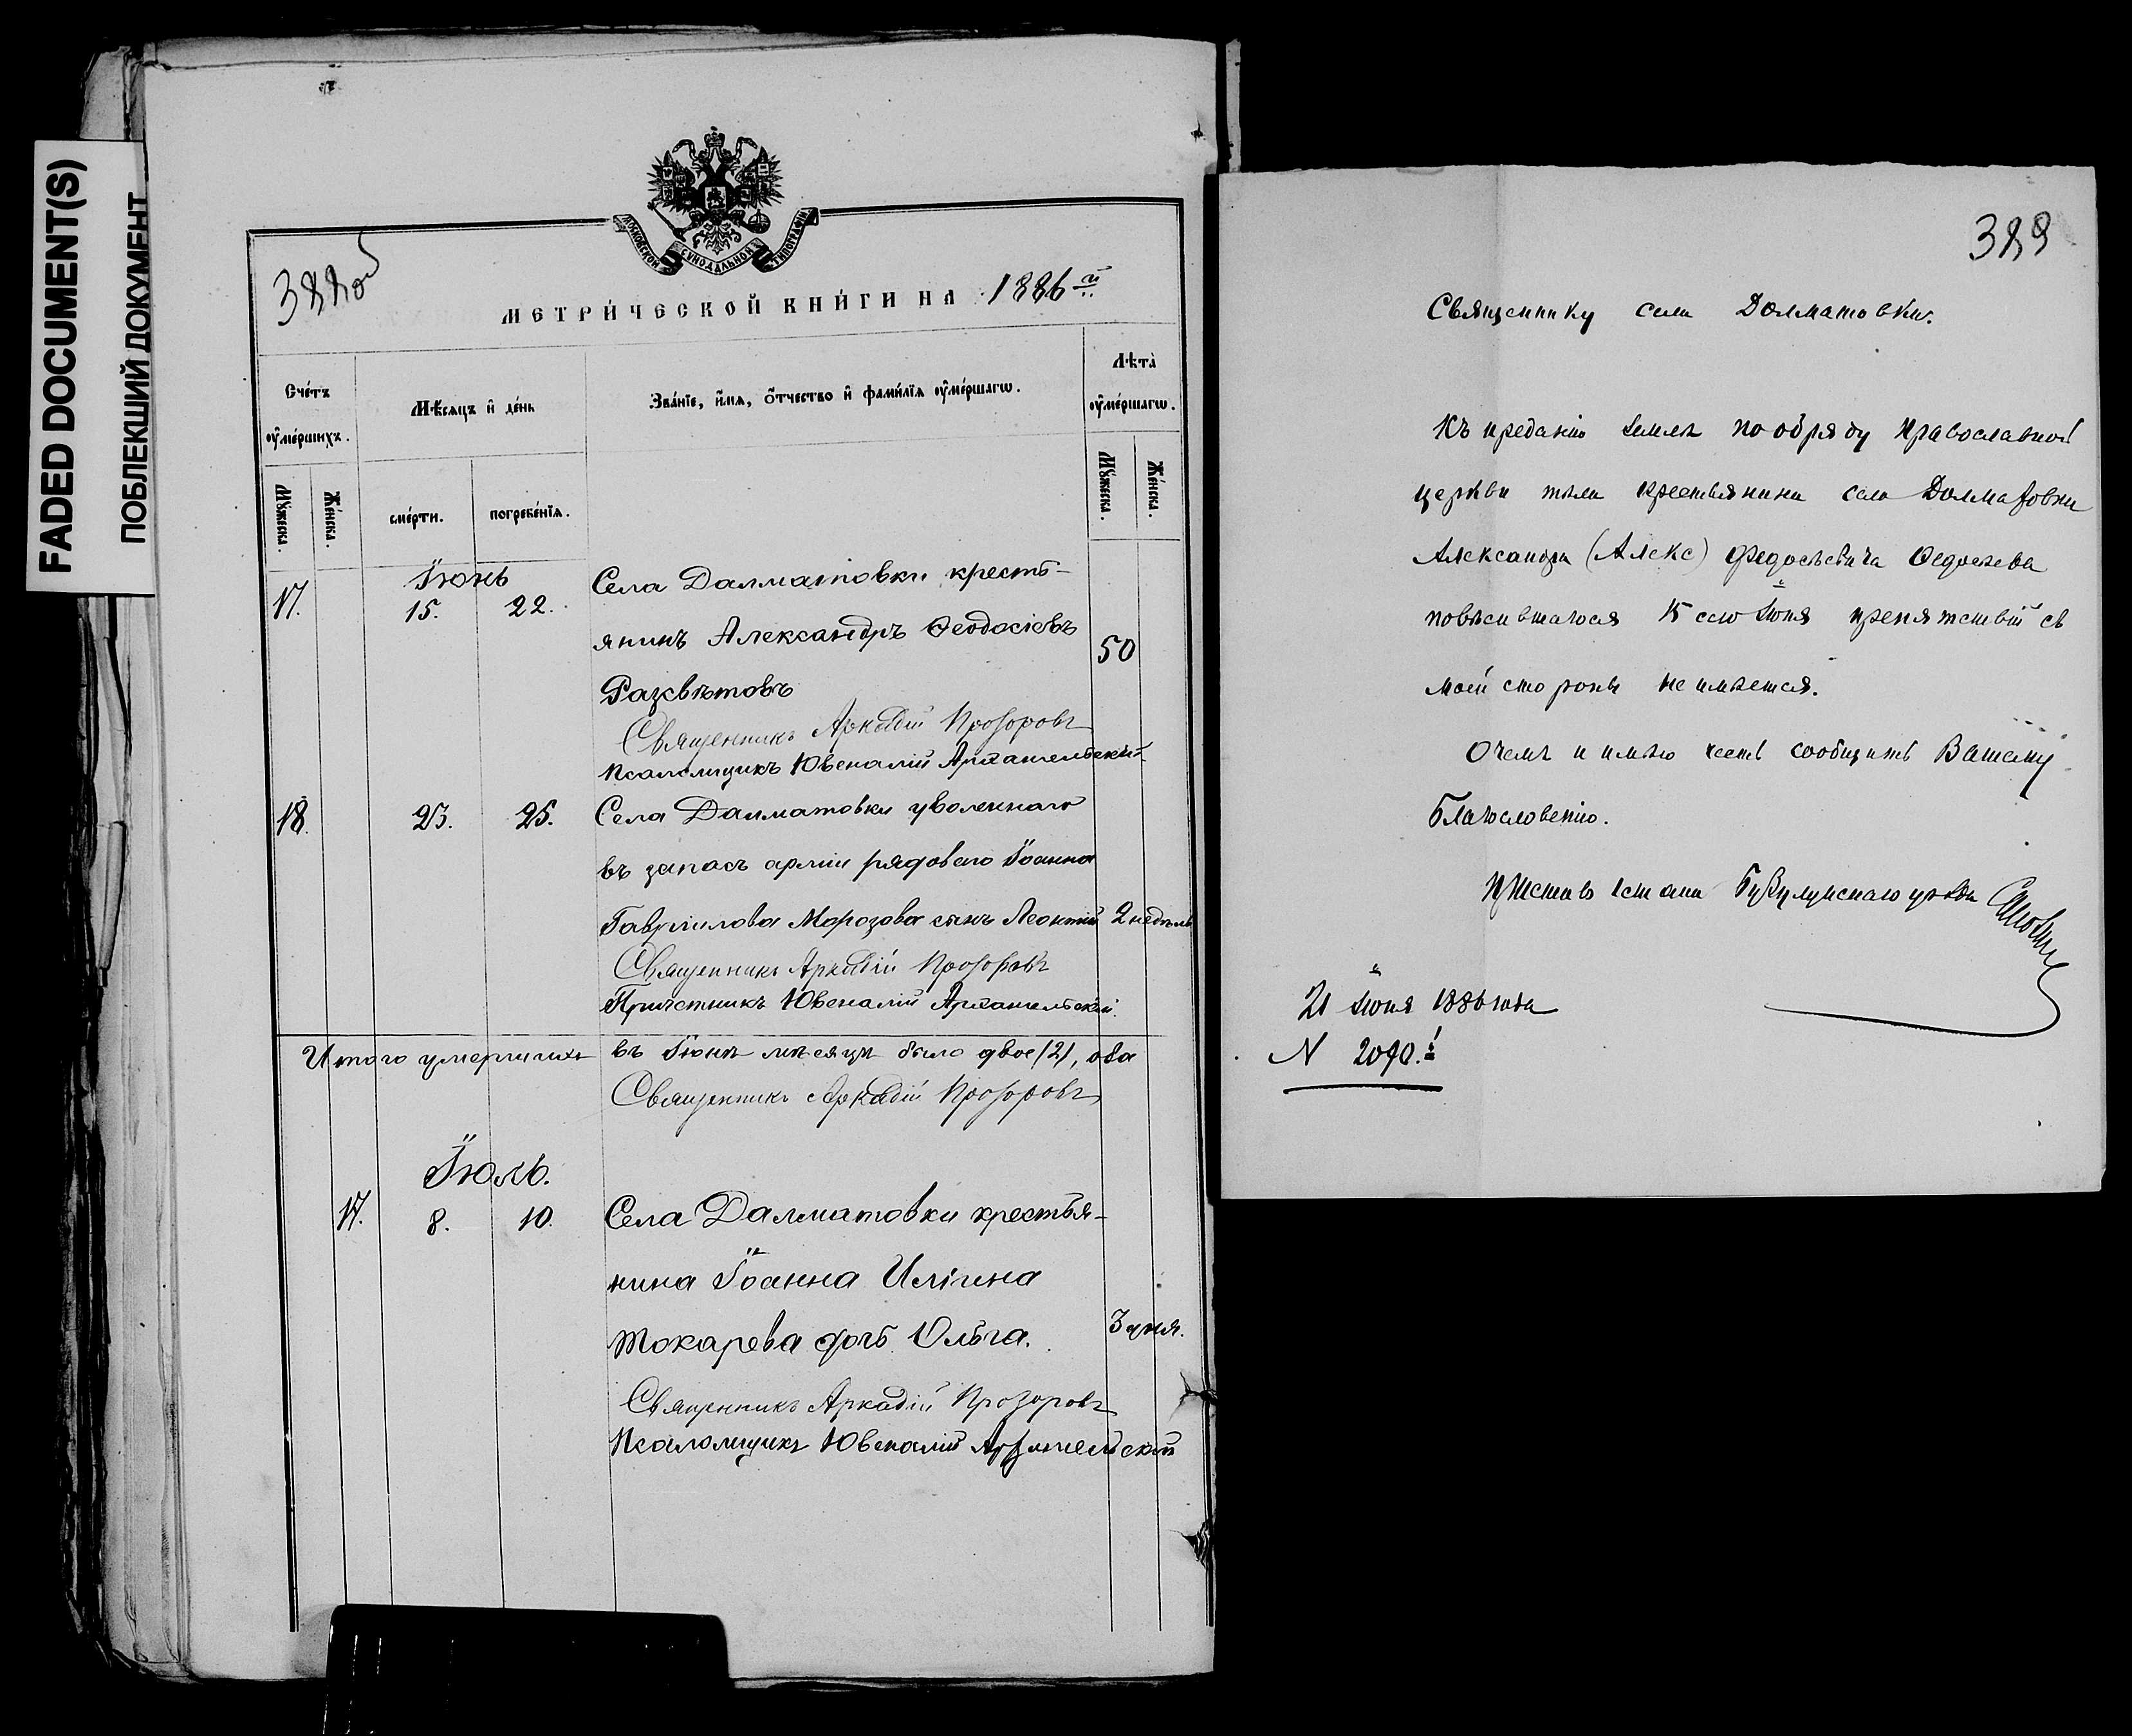 FADED DOCUMENT(S)
ПОБЛЕКШИЙ ДОКУМЕНТ
МОСКОВСКОЙ СѴНОДАЛЬНОЙ ТИПОГРАФІИ
388об
МЕТРИ́ЧЕСКОЙ КНИ́ГИ НА 1886й
Сче́тъ ѹ҆ме́ршихъ.
Мѣ́сяцъ и҆ де́нь
Зва́нїе, и҆́мѧ, ѻ҆́тчество и҆ фами́лїѧ ѹ҆ме́ршагѡ.
Лѣта̀ ѹ҆ме́ршагѡ.
Мꙋ́жеска.
Же́нска.
сме́рти.
погребе́нїѧ.
Мꙋ́жеска.
Же́нска.
Іюнь
17. 15. 22. Села Далматовки кресть-
янинъ Александръ Ѳеодосіевъ
50
Разсвѣтовъ
Священникъ Аркадій Прозоровъ
Псаломщикъ Ювеналій Архангельскій
18. 23. 25. Села Далматовки уволеннаго
въ запасъ арміи рядового Іоанна
Гавріилова Морозова сынъ Леонтій 2 недѣли
Священникъ Аркадій Прозоровъ
Причетникъ Ювеналій Архангельскій.
Итого умершихъ въ Іюнѣ мѣсяцѣ было двое (2), оба
Священникъ Аркадій Прозоровъ
Іюль.
17. 8. 10. Села Далматовки крестья-
нина Іоанна Иліина
Токарева дочь Ольга. 3 дня.
Священникъ Аркадій Прозоровъ
Псаломщикъ Ювеналій Архангельскій
389
Священнику села Долматовки.
Къ преданію землѣ по обряду православной
церкви тѣла крестьянина села Долматовки
Александра (Алекс) Федосѣевича Ѳедосѣева
повѣсившагося 15 сего Іюня препятствій съ
моей стороны не имѣется.
О чемъ и имѣю честь сообщить Вашему
Благословенію.
Приставъ 1 стана Бузулукскаго уѣзда
21 Іюня 1886 года
N 2090.